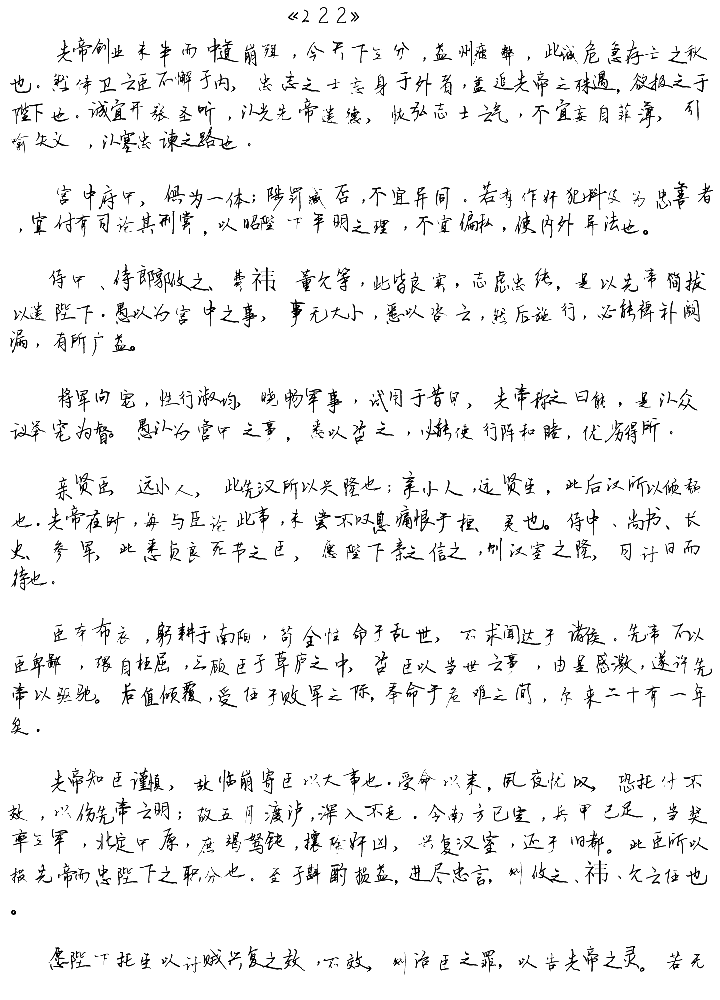 《222》
先帝创业未半而中道崩殂，今天下三分，益州疲弊，此诚危急存亡之秋
也．然侍卫之臣不懈于内，忠志之士忘身于外者，盖追先帝之殊遇，欲报之于
陛下也．诚宜开张圣听，以光先帝遗德，恢弘志士之气，不宜妄自菲薄，引
喻失义，以塞忠谏之路也．
宫中府中，俱为一体；陟罚臧否，不宜异同．若有作奸犯科及为忠善者
，宜付有司论其刑赏，以昭陛下平明之理，不宜偏私，使内外异法也。
侍中、侍郎郭攸之、费祎、董允等，此皆良实，志虑忠纯，是以先帝简拔
以遗陛下．愚以为宫中之事，事无大小，悉以咨之，然后施行，必能裨补阙
漏，有所广益。
将军向宠，性行淑均，晓畅军事，试用于昔日，先帝称之曰能，是以众
议举宠为督。愚以为营中之事，悉以咨之，必能使行阵和睦，优劣得所．
亲贤臣，远小人，此先汉所以兴隆也；亲小人，远贤臣，此后汉所以倾颓
也．先帝在时，每与臣论此事，未尝不叹息痛恨于桓、灵也。侍中、尚书、长
史、参军，此悉贞良死节之臣，愿陛下亲之信之，则汉室之隆，可计日而
待也．
臣本布衣，躬耕于南阳，苟全性命于乱世，不求闻达于诸侯．先帝不以
臣卑鄙，猥自枉屈，三顾臣于草庐之中，咨臣以当世之事，由是感激，遂许先
帝以驱驰。后值倾覆，受任于败军之际，奉命于危难之间，尔来二十有一年
矣．
先帝知臣谨慎，故临崩寄臣以大事也．受命以来，夙夜忧叹，恐托付不
效，以伤先帝之明；故五月渡泸，深入不毛．今南方已定，兵甲已足，当奖
率三军，北定中原，庶竭驽钝，攘除奸凶，兴复汉室，还于旧都。此臣所以
报先帝而忠陛下之职分也．至于斟酌损益，进尽忠言，则攸之、祎、允之任也
。
愿陛下托臣以讨贼兴复之效，不效，则治臣之罪，以告先帝之灵。若无